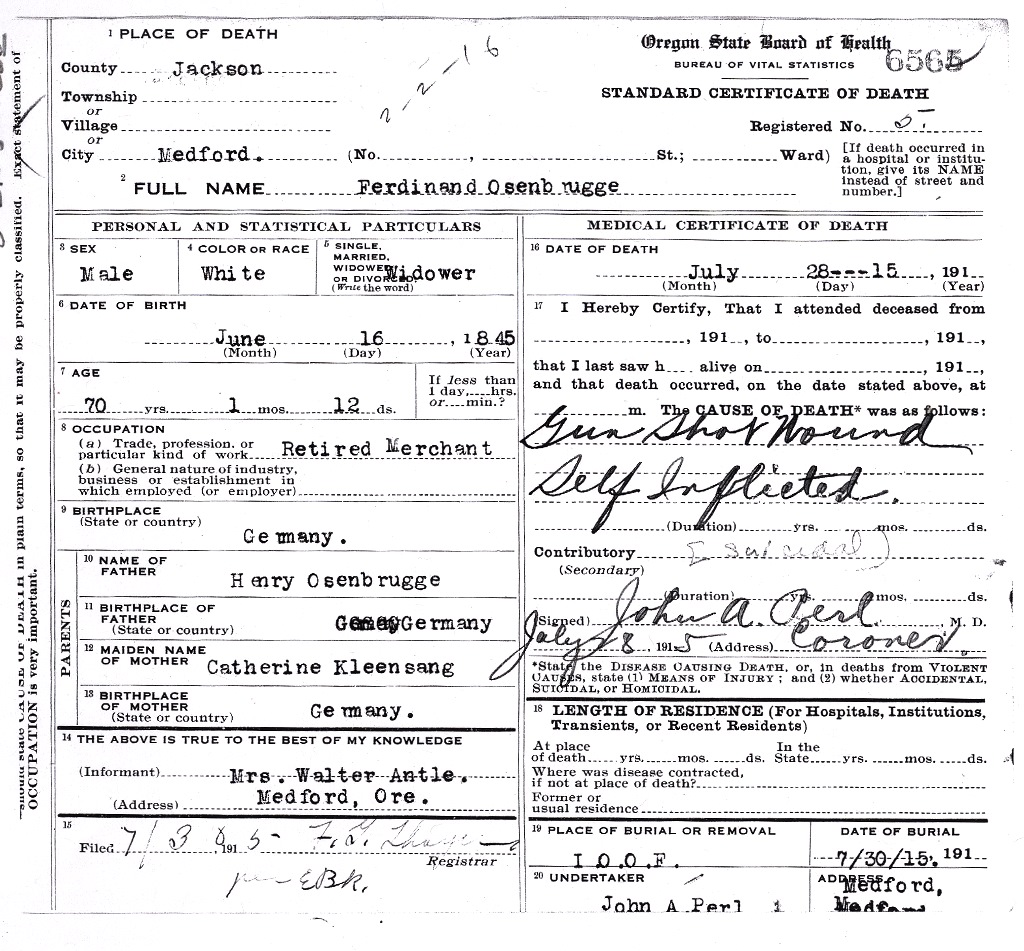 1 PLACE OF DEATH
County Jackson
Township
or
Village
or
City Medford. (No. , St.; Ward)
2-2-16
Oregon State Board of Health
BUREAU OF VITAL STATISTICS
6565
STANDARD CERTIFICATE OF DEATH
Registered No. 5
[If death occurred in
a hospital or institu-
tion, give its NAME
instead of street and
number.]
2 FULL NAME Ferdinand Osenbrugge
PERSONAL AND STATISTICAL PARTICULARS
3 SEX
Male
4 COLOR OR RACE
White
5 SINGLE,
MARRIED,
WIDOWED
OR DIVORCED
(Write the word)
Widower
6 DATE OF BIRTH
June 16 , 1845
(Month) (Day) (Year)
7 AGE
70 yrs. 1 mos. 12 ds.
If less than
1 day, hrs.
or min.?
8 OCCUPATION
(a) Trade, profession, or
particular kind of work Retired Merchant
(b) General nature of industry,
business or establishment in
which employed (or employer)
9 BIRTHPLACE
(State or country)
Germany.
PARENTS
10 NAME OF
FATHER
Henry Osenbrugge
11 BIRTHPLACE OF
FATHER
(State or country) Germany
12 MAIDEN NAME
OF MOTHER Catherine Kleensang
13 BIRTHPLACE
OF MOTHER
(State or country) Germany.
14 THE ABOVE IS TRUE TO THE BEST OF MY KNOWLEDGE
(Informant) Mrs. Walter Antle.
(Address) Medford, Ore.
15
Filed 7/30 1915
Registrar
per EBK.
MEDICAL CERTIFICATE OF DEATH
16 DATE OF DEATH
July 28---15 , 191
(Month) (Day) (Year)
17 I Hereby Certify, That I attended deceased from
, 191 , to , 191 ,
that I last saw h alive on , 191 ,
and that death occurred, on the date stated above, at
m. The CAUSE OF DEATH* was as follows:
Gun Shot Wound
Self Inflicted.
(Duration) yrs. mos. ds.
Contributory (suicidal)
(Secondary)
(Duration) yrs. mos. ds.
(Signed) John A. Perl. M. D.
July 28, 1915 (Address) Coroner.
*State the DISEASE CAUSING DEATH, or, in deaths from VIOLENT
CAUSES, state (1) MEANS OF INJURY; and (2) whether ACCIDENTAL,
SUICIDAL, OR HOMICIDAL.
18 LENGTH OF RESIDENCE (For Hospitals, Institutions,
Transients, or Recent Residents)
At place
of death yrs. mos. ds. In the
State yrs. mos. ds.
Where was disease contracted,
if not at place of death?
Former or
usual residence
19 PLACE OF BURIAL OR REMOVAL
I O O F.
DATE OF BURIAL
7/30/15. 191
20 UNDERTAKER
John A Perl
ADDRESS
Medford,
Medford
CAUSE OF DEATH in plain terms, so that it may be properly classified. Exact statement of
OCCUPATION is very important.